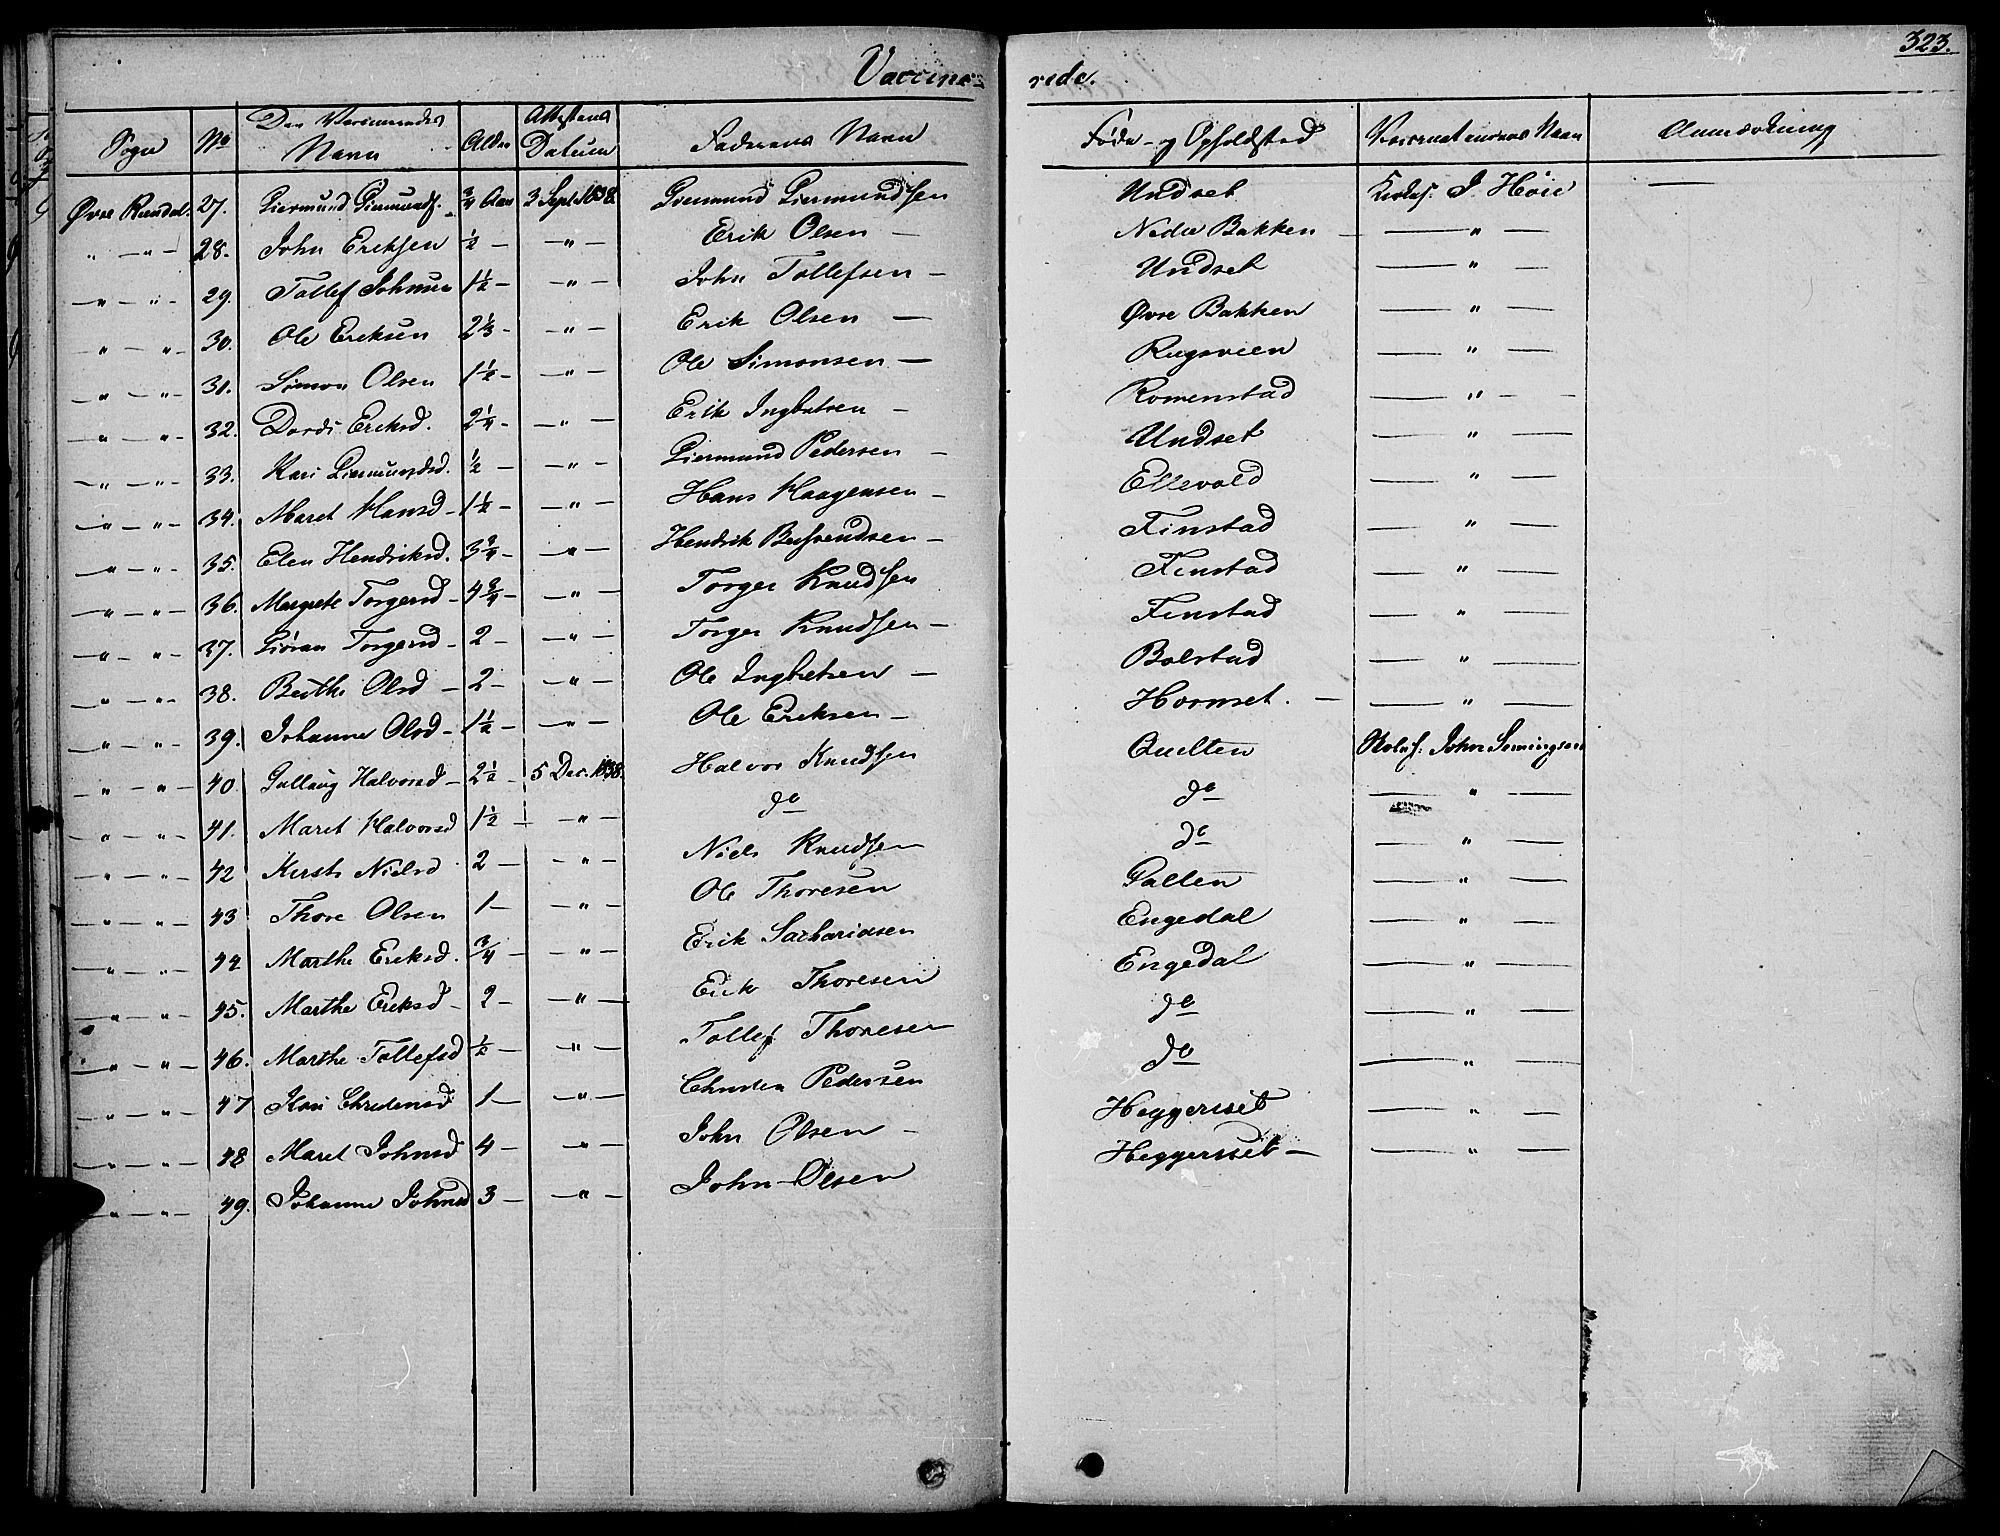 323.
Vaccine=rede.
Sogn | No | Den Vaccineredes Navn | Alder | Attestens Datum | Faderens Navn | Føde- og Opholdsted | Vaccinateurens Navn | Anmærkning
Øvre Rendal. | 27. | Giermund Giermunds. | 3/4 Aar | 3 Sept. 1838. | Giermund Giermundsen | Undset | J. Höie | —
" — " — | 28. | John Eriksen | 1/2 — | — " — | Erik Olsen — | Nedre Bakken — | — " —
" — " — | 29. | Tollef Johnsen | 1 1/2 — | — " — | John Tollefsen — | Undset | — " —
" — " — | 30. | Ole Eriksen | 2 1/3 — | — " — | Erik Olsen — | Øvre Bakken | — " —
" — " — | 31. | Simon Olsen | 1 1/2 — | — " — | Ole Simonsen — | Rugsveen | — " —
" — " — | 32. | Dordi Eriksd. | 2 1/4 — | — " — | Erik Ingbretsen — | Romenstad | — " —
" — " — | 33. | Kari Giermundsd. | 1/2 — | — " — | Giermund Pedersen — | Undset | — " —
" — " — | 34. | Maret Hansd — | 1 1/2 — | — " — | Hans Haagensen — | Ellevold | — " —
" — " — | 35. | Elen Hendriksd. | 3 3/4 — | — " — | Hendrik — | Finstad | — " —
" — " — | 36. | Margrete Torgersd — | 4 3/4 — | — " — | Torger Knudsen | Finstad | — " —
" — " — | 37. | Giøran Torgersd — | 2 — | — " — | Torger Knudsen — | Finstad | — " —
" — " — | 38. | Berthe Olsd — | 2 — | — " — | Ole Ingbretsen — | Bolstad | — " —
" — " — | 39. | Johanne Olsd — | 1 1/2 — | — " — | Ole Eriksen — | Hornset. — | — " —
" — " — | 40. | Gullaug Halvorsd — | 2 1/2 — | 5 Dec. 1838. | Halvor Knudsen | Qvelten | John Simingsen
" — " — | 41. | Maret Halvorsd | 1 1/2 — | — " — | do | do | — " —
" — " — | 42 | Kirsti Nielsd | 2 — | — " — | Niels Knudsen | do | — " —
" — " — | 43 | Thore Olsen | 1 — | — " — | Ole Thoresen | Galten | — " —
" — " — | 44 | Marthe Eriksd. | 3/4 — | — " — | Erik Sachariasen | Engedal | — " —
" — " — | 45. | Marthe Eriksd — | 2 — | — " — | Erik Thoresen | Engedal | — " —
" — " — | 46. | Marthe Tollefsd | 1/2 — | — " — | Tollef Thoresen | do | — " —
" — " — | 47 | Kari Christensd | 1 — | — " — | Christen Pedersen | do | — " —
" — " — | 48 | Maret Johnsd | 4 — | — " — | John Olsen — | Heggerset | — " —
" — " — | 49. | Johanne Johnsd | 3 — | — " — | John Olsen | Heggerset — | — " —